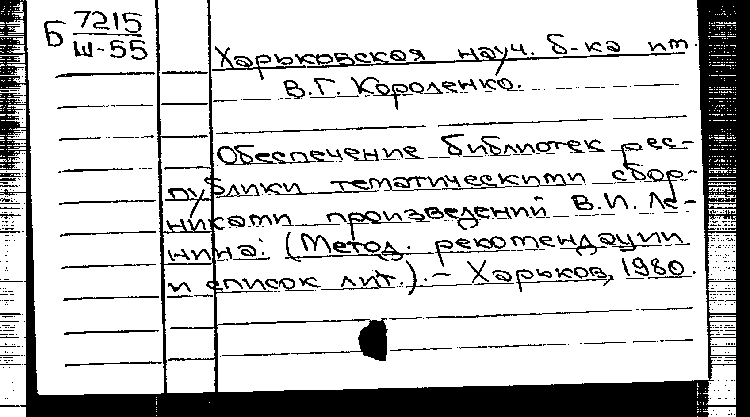 Б 7215
Ш-55
Харьковская науч. б-ка им.
В.Г. Короленко.
Обеспечение библиотек рес-
публики тематическими сбор-
никами произведений В.И. Ле-
нина: (Метод. рекомендации
и список лит.). – Харьков, 1980.